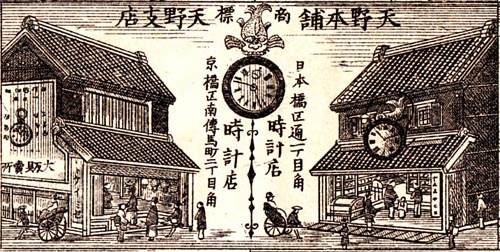 天野本舗
商標
天野支店
日本橋区通一丁目角
時計店
京橋区南傳馬町二丁目角
時計店
大販賣所